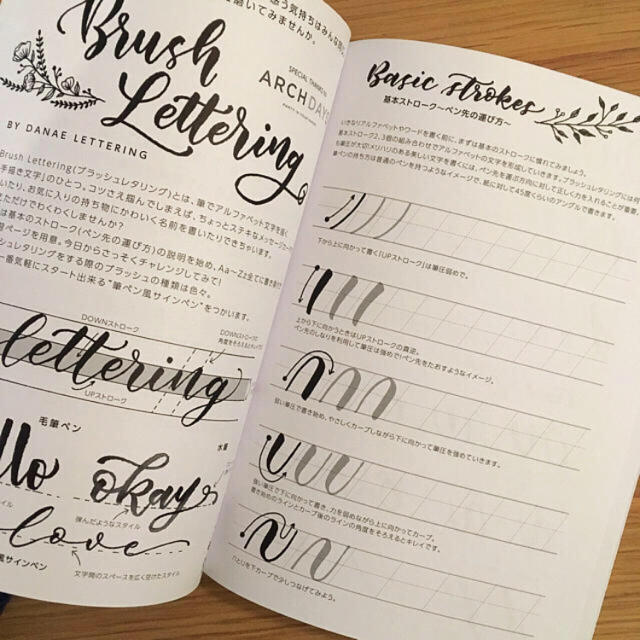 Brush
Lettering
SPECIAL THANKS TO
ARCH DAYS
BY DANAE LETTERING
Brush Lettering(ブラッシュレタリング)とは、筆でアルファベット文字を描く
手描き文字」のひとつ。コツさえ掴んでしまえば、ちょっとステキなメッセージ
いたり、お気に入りの持ち物にかわいく名前を書いたりできちゃいます。
ただけでわくわくしませんか?
は基本のストローク(ペン先の運び方)の説明を始め、Aa~Zz全てに書き
習ページを用意。今日からさっそくチャレンジしてみて!
シュレタリングをする際のブラッシュの種類は色々。
一番気軽にスタート出来る“筆ペン風サインペン”をつかいます。
DOWNストローク
DOWNストロークの
角度をそろえるとキレイ!
lettering
UPストローク
毛筆ペン
水筆
llo
okay
弾んだようなスタイル
love
風サインペン
文字間のスペースを広く空けたスタイル
Basic strokes
基本ストローク~ペン先の運び方~
いきなりアルファベットやワードを書く前に、まずは基本のストロークに慣れてみましょう。
基本ストローク2、3個の組み合わせでアルファベットの文字を形成していきます。ブラッシュレタリングには何
も筆圧が大切!メリハリのある美しい文字を書くには、ペン先を運ぶ方向に対して正しく力を入れることが重要
筆ペンの持ち方は普通のペンを持つようなイメージで、紙に対して45度くらいのアングルで書きます。
下から上に向かって書く「UPストローク」は筆圧弱めで。
上から下に向かうときはUPストロークの真逆。
ペン先のしなりを利用して筆圧は強めで!ペン先をたおすようなイメージ。
弱い筆圧で書き始め、やさしくカーブしながら下に向かって筆圧を強めていきます。
強い筆圧で下に向かって書き、力を弱めながら上に向かってカーブ。
書き始めのラインとカーブ後のラインの角度をそろえるとキレイです。
ひとりを下カーブで少しつなげてみよう。